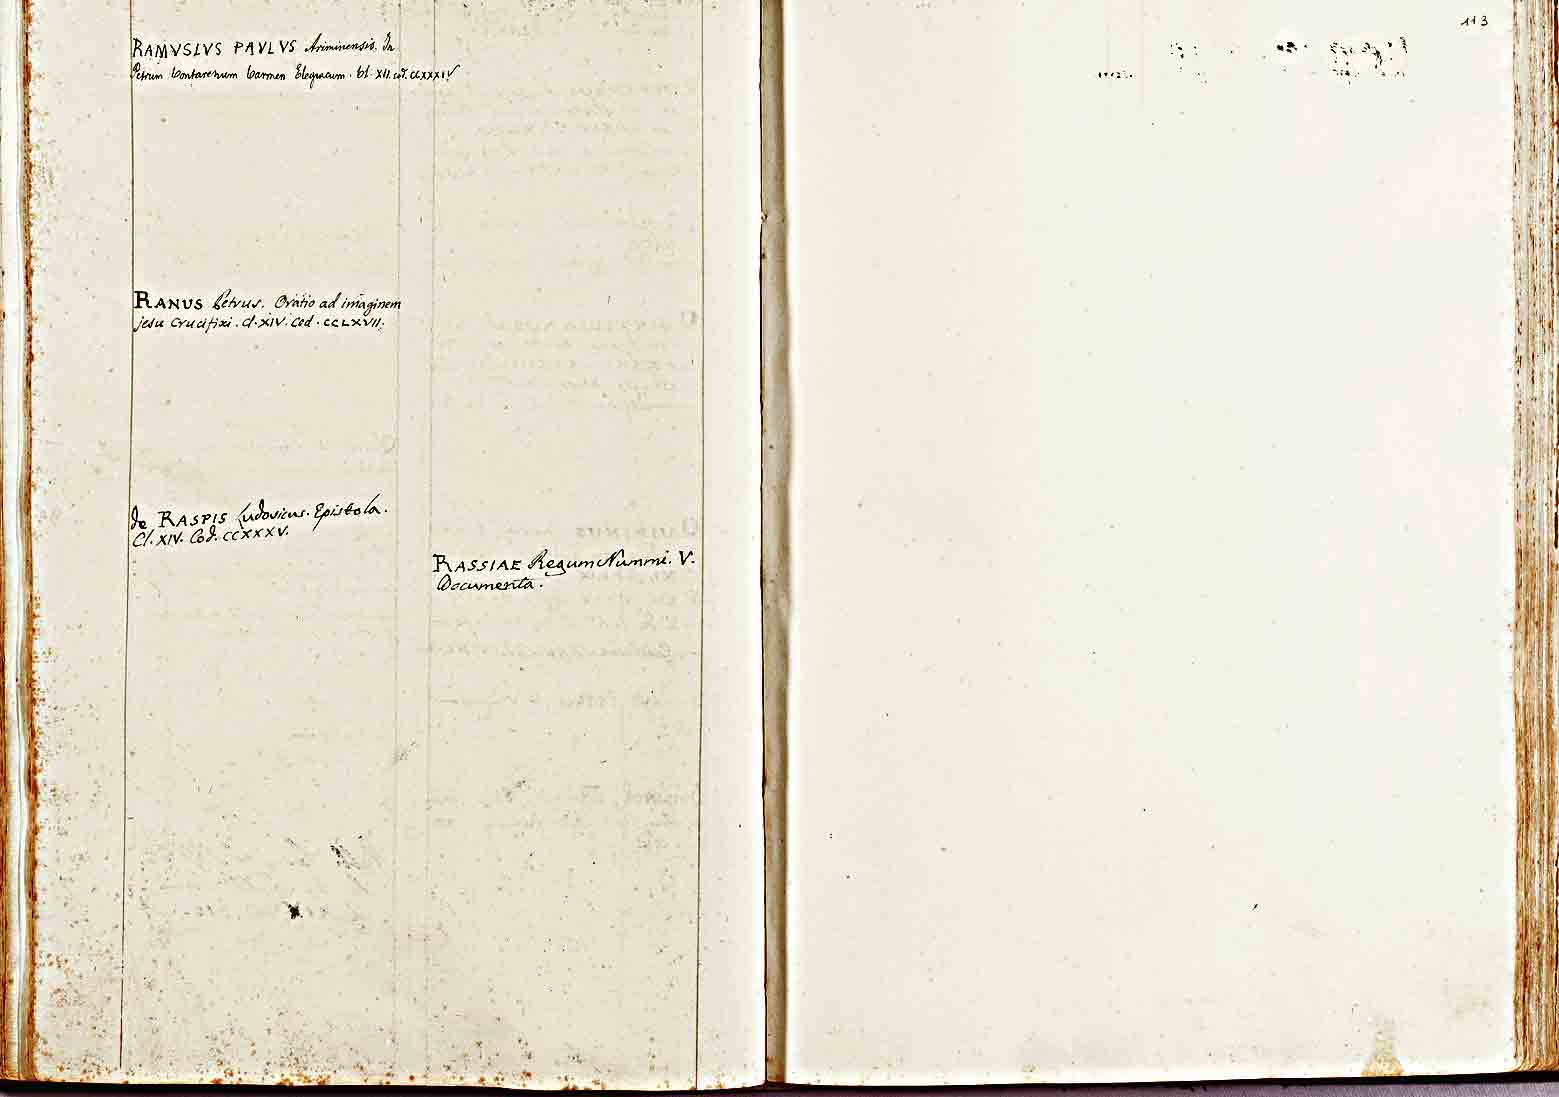 RAMVSLVS PAVLVS Ariminensis. In
Petrum Contarenum Carmen Elegiacum. Cl. XII. cod. CCXXXIV
RANUS Petrus. Oratio ad imaginem
jesu Crucifixi. cl. XIV. Cod. CCLXVII.
de RASPIS Ludovicus. Epistola.
Cl. XIV. Cod. CCXXXV.
RASSIAE Regum Nummi. V.
Documenta.
113